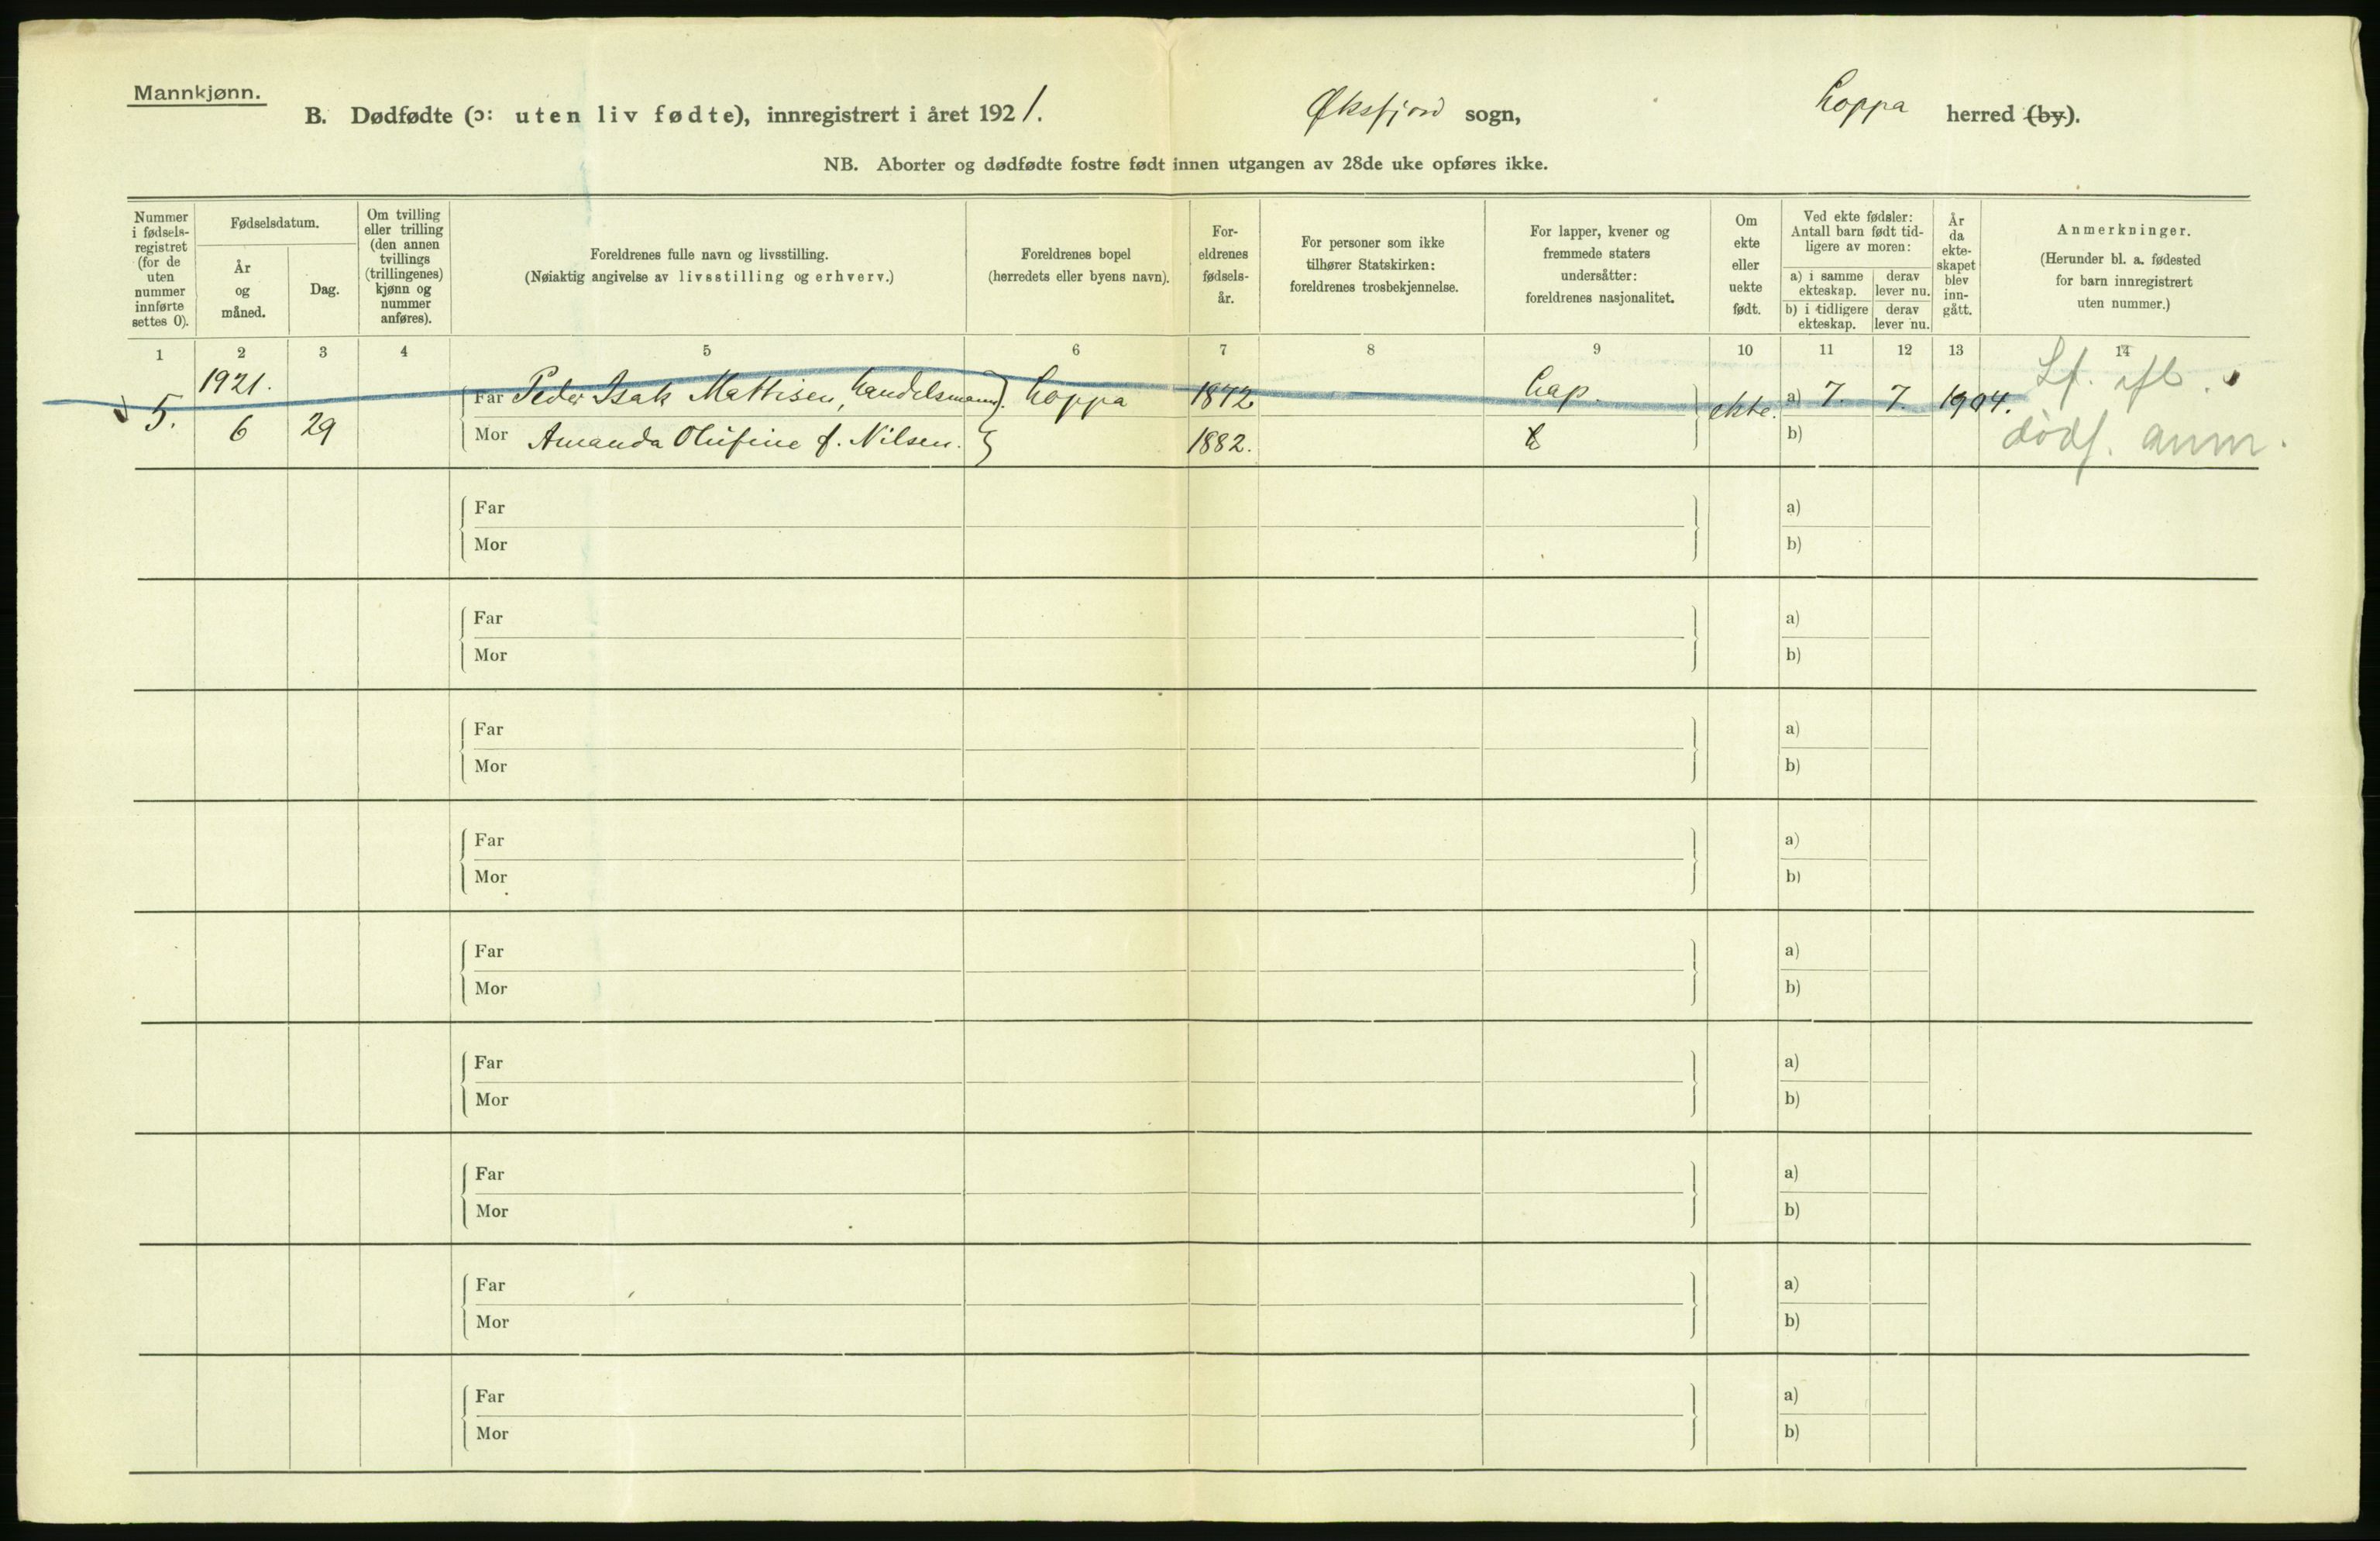 Mannkjønn.
B. Dødfødte (ɔ: uten liv fødte), innregistrert i året 1921. Øksfjord sogn, Loppa herred (by).
NB. Aborter og dødfødte fostre født innen utgangen av 28de uke opføres ikke.
Nummer i fødsels-registret (for de uten nummer innførte settes 0).
Fødselsdatum.
År og måned.
Dag.
Om tvilling eller trilling (den annen tvillings (trillingenes) kjønn og nummer anføres).
Foreldrenes fulle navn og livsstilling.
(Nøiaktig angivelse av livsstilling og erhverv.)
Foreldrenes bopel
(herredets eller byens navn).
For-eldrenes fødsels-år.
For personer som ikke tilhører Statskirken: foreldrenes trosbekjennelse.
For lapper, kvener og fremmede staters undersåtter: foreldrenes nasjonalitet.
Om ekte eller uekte født.
Ved ekte fødsler: Antall barn født tid-ligere av moren:
a) i samme ekteskap.
derav lever nu.
b) i tidligere ekteskap.
derav lever nu.
År da ekte-skapet blev inn-gått.
Anmerkninger.
(Herunder bl. a. fødested for barn innregistrert uten nummer.)
1 2 3 4 5 6 7 8 9 10 11 12 13 14
1921.
5. 6 29
Far Peder Isak Mathisen, handelsmann. Loppa 1872 Lap. ekte. a) 7. 7. 1904.
Mor Amanda Olufine f. Nilsen. 1882. b)
dødf. anm.
Far a)
Mor b)
Far a)
Mor b)
Far a)
Mor b)
Far a)
Mor b)
Far a)
Mor b)
Far a)
Mor b)
Far a)
Mor b)
Far a)
Mor b)
Far a)
Mor b)